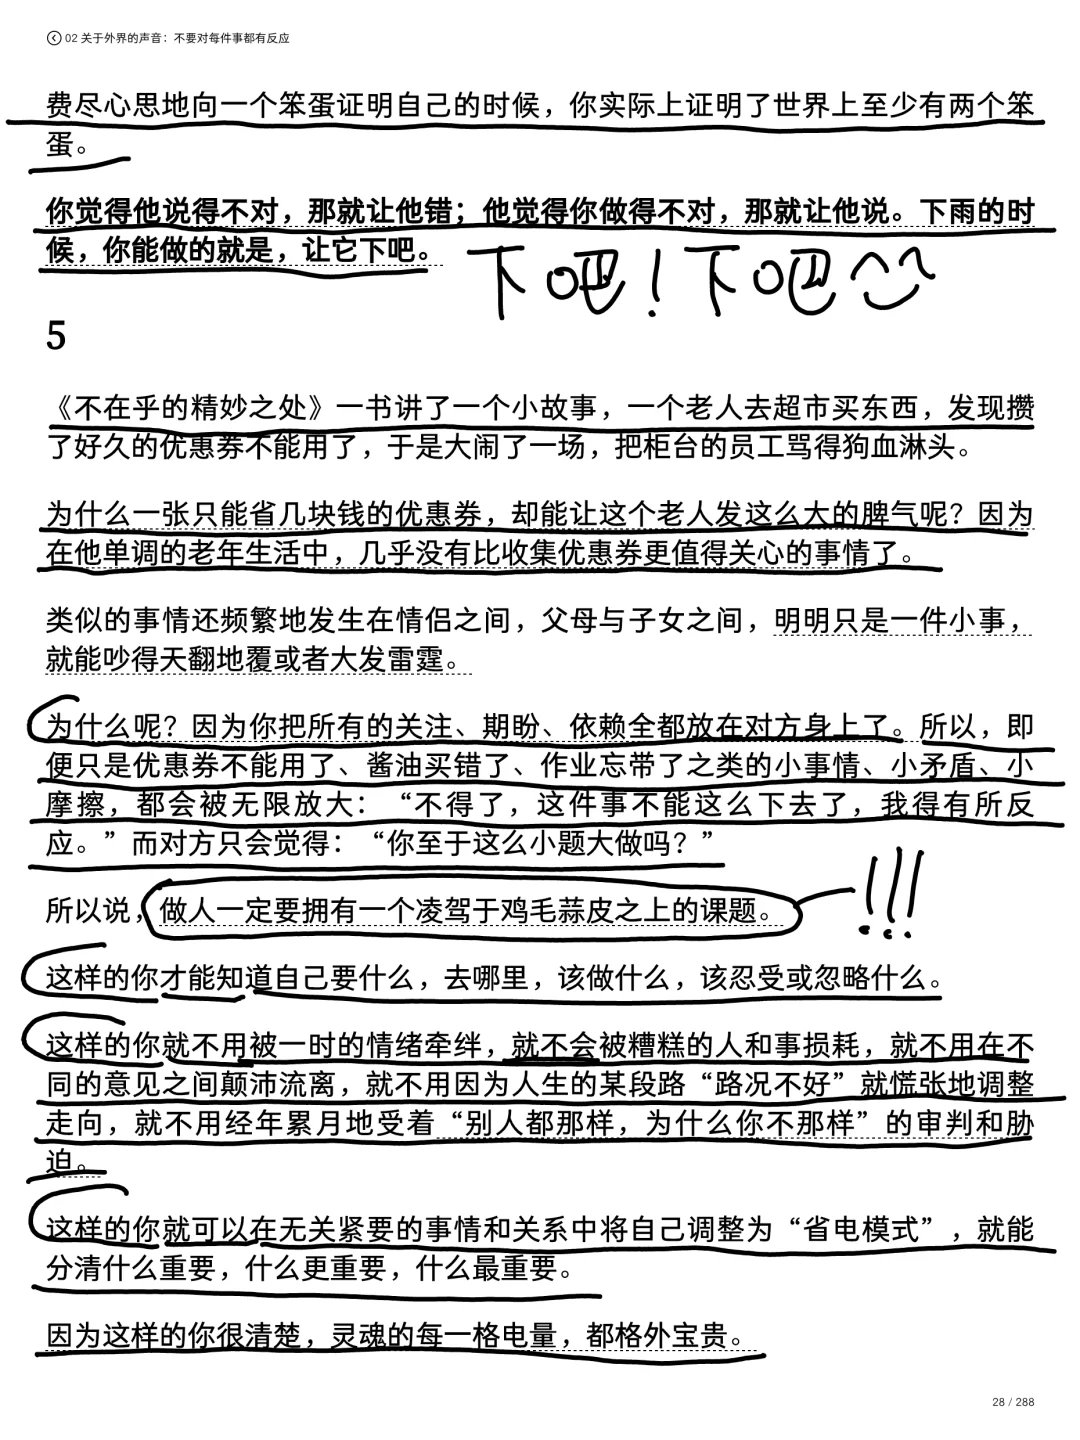 02 关于外界的声音：不要对每件事都有反应
费尽心思地向一个笨蛋证明自己的时候，你实际上证明了世界上至少有两个笨
蛋。
你觉得他说得不对，那就让他错；他觉得你做得不对，那就让他说。下雨的时
候，你能做的就是，让它下吧。
下吧！下吧
5
《不在乎的精妙之处》一书讲了一个小故事，一个老人去超市买东西，发现攒
了好久的优惠券不能用了，于是大闹了一场，把柜台的员工骂得狗血淋头。
为什么一张只能省几块钱的优惠券，却能让这个老人发这么大的脾气呢？因为
在他单调的老年生活中，几乎没有比收集优惠券更值得关心的事情了。
类似的事情还频繁地发生在情侣之间，父母与子女之间，明明只是一件小事，
就能吵得天翻地覆或者大发雷霆。
为什么呢？因为你把所有的关注、期盼、依赖全都放在对方身上了。所以，即
便只是优惠券不能用了、酱油买错了、作业忘带了之类的小事情、小矛盾、小
摩擦，都会被无限放大：“不得了，这件事不能这么下去了，我得有所反
应。”而对方只会觉得：“你至于这么小题大做吗？”
所以说，做人一定要拥有一个凌驾于鸡毛蒜皮之上的课题。
!!!
这样的你才能知道自己要什么，去哪里，该做什么，该忍受或忽略什么。
这样的你就不用被一时的情绪牵绊，就不会被糟糕的人和事损耗，就不用在不
同的意见之间颠沛流离，就不用因为人生的某段路“路况不好”就慌张地调整
走向，就不用经年累月地受着“别人都那样，为什么你不那样”的审判和胁
迫。
这样的你就可以在无关紧要的事情和关系中将自己调整为“省电模式”，就能
分清什么重要，什么更重要，什么最重要。
因为这样的你很清楚，灵魂的每一格电量，都格外宝贵。
28 / 288